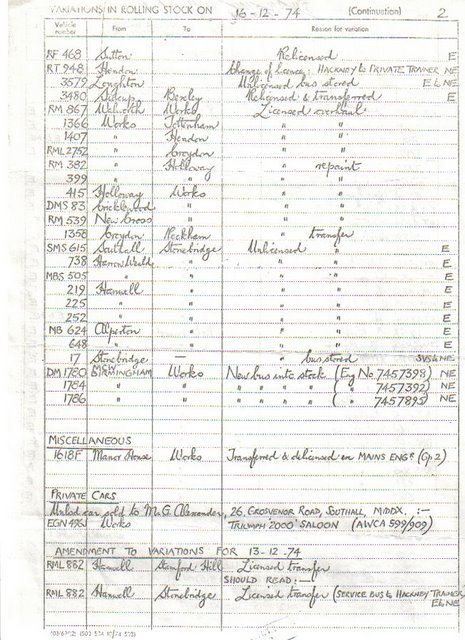 VARIATIONS IN ROLLING STOCK ON 16-12-74 (Continuation) 2
Vehicle number From To Reason for variation
RF 468 Sutton Relicensed E
RT 948 Hendon Change of licence: HACKNEY to PRIVATE TRAINER NE
3579 Loughton Unlicensed bus stored E & NE
3480 Sidcup Bexley Relicensed & transferred E
RM 867 Walworth Works Licensed overhaul
1366 Works Tottenham " "
1407 " Hendon " "
RML 2752 " Croydon " "
RM 382 " Holloway " repaint
399 " " " "
415 Holloway Works " "
DMS 83 Cricklewood " " "
RM 539 New Cross " " "
1358 Croydon Peckham " transfer
SMS 615 Southall Stonebridge Unlicensed " E
738 Harrow Weald " " " E
MBS 505 " " " " E
219 Hanwell " " " E
225 " " " " E
252 " " " " E
MB 624 Alperton " " " E
648 " " " " E
17 Stonebridge — " bus stored SVS & NE
DM 1780 MCW BIRMINGHAM Works New bus into stock (Eng No 7457398) NE
1784 " " " " " " ( " 7457392) NE
1786 " " " " " " ( " 7457895) NE
MISCELLANEOUS
1618F Manor House Works Transferred & delicensed on MAINS ENGR (Gp.2)
PRIVATE CARS
Unlcd car sold to Mr G. Alexander, 26, GROSVENOR ROAD, SOUTHALL, MIDDX. :—
EGN 496J Works TRIUMPH '2000' SALOON (AWCA 599/909)
AMENDMENT TO VARIATIONS FOR 13-12-74
RML 882 Hanwell Stamford Hill Licensed transfer
SHOULD READ :—
RML 882 Hanwell Stonebridge Licensed transfer (SERVICE BUS to HACKNEY TRAINER
E & NE